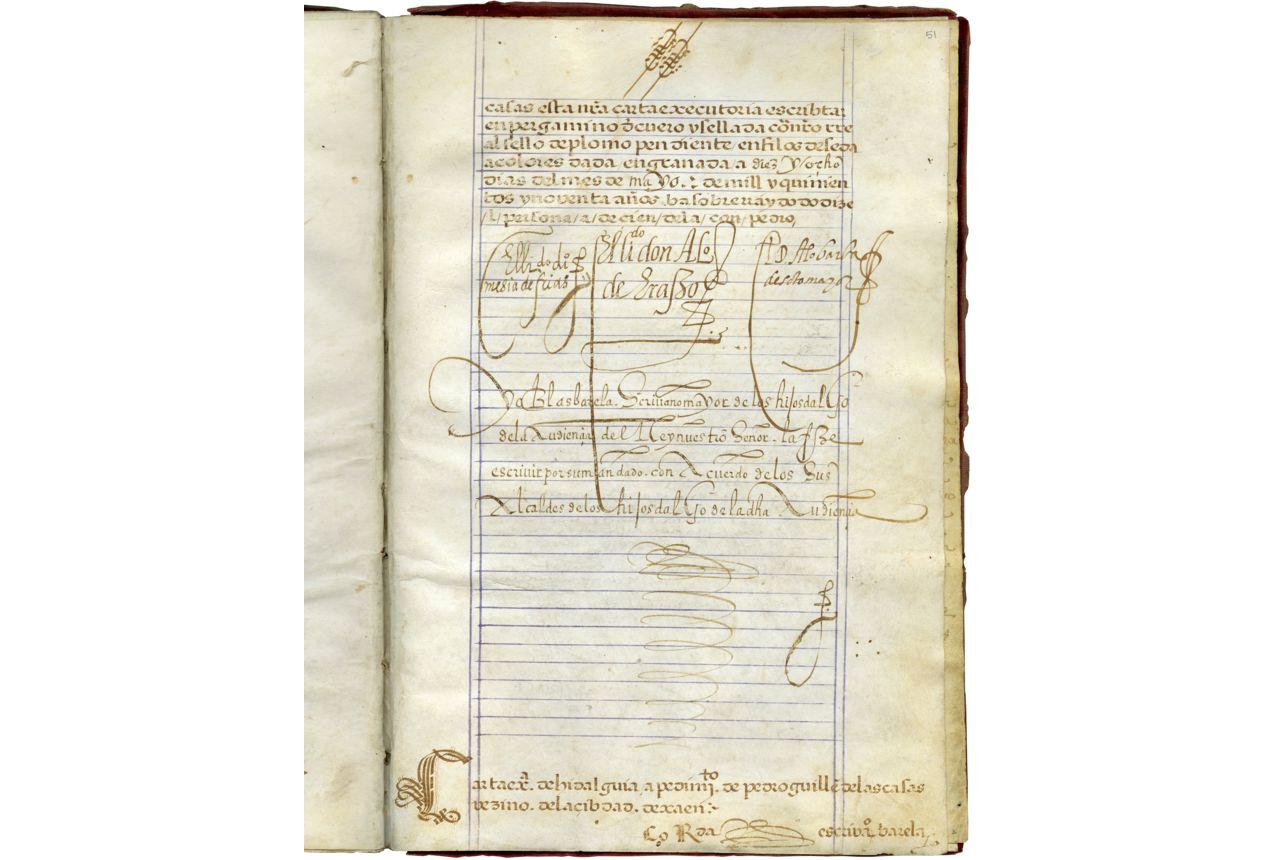 51
casas esta nr̃a carta executoria escribta
en pergamino d̃ cuero y sellada cõ nr̃o
al sello de plomo pendiente en filos de seda
a colores dada en granada a diez y ocho
dias del mes de mayo. de mill y quinien
tos y noventa años. ba sobre rray do do dize
/l/ persona/a/de cien/dela/con/pedro,
El lido don Alo
de
El lido di
mesia de frias
D Alo barba
de sotomayor
yo Blas barela. Scrivano mayor de los hijosdalgo
dela Audiençia del Rey nuestro Señor. la fize
escrivir por su mandado. con Acuerdo de los Sus
Alcaldes de los hijosdalgo de la dha Audiençia
Carta exª. de hidalguia a pedimito. de pedro guillẽ de las casas
vezino. de la çibdad. de xaen
Rda escrivaº. barela